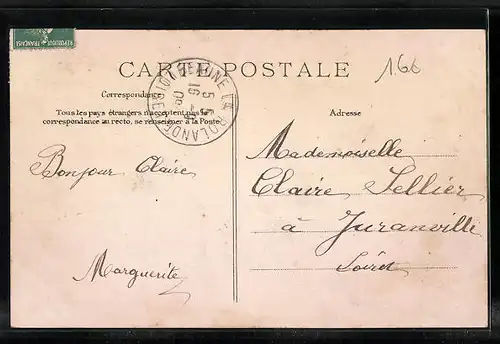 REPUBLIQUE FRANÇAISE
CARTE POSTALE
166
BEAUNE LA ROLANDE
Correspondance
Tous les pays étrangers n'acceptent pas la
correspondance au recto, se renseigner à la Poste
Adresse
Bonjour Claire
Marguerite
Mademoiselle
Claire Sellier
à Juranville
Loiret